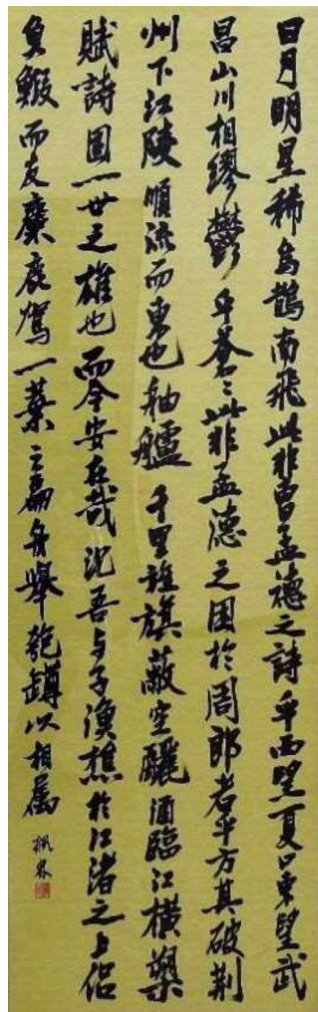 日月明星稀烏鵲南飛此非曹孟德之詩乎西望夏口東望武
昌山川相繆鬱乎蒼々此非孟德之困於周郎者乎方其破荆
州下江陵順流而東也舳艫千里旌旗蔽空釃酒臨江横槊
賦詩固一世之雄也而今安在哉況吾与子漁樵於江渚之上侣
魚鰕而友麋鹿駕一葉之扁舟舉匏罇以相属
楓林